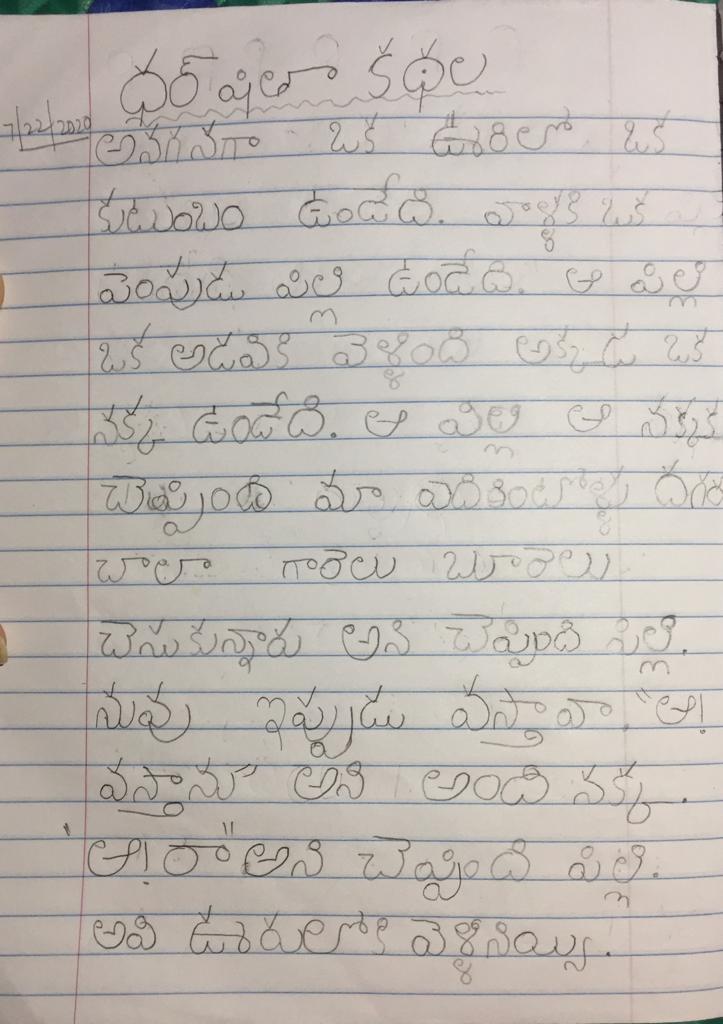 ధర్ షితా కథల
7/22/2020
అనగనగా ఒక ఊరిలో ఒక
కుటుంబం ఉండేది. వాళ్ళకి ఒక
పెంపుడు పిల్లి ఉండేది. ఆ పిల్లి
ఒక అడవికి వెళ్ళింది అక్కడ ఒక
నక్క ఉండేది. ఆ పిల్లి ఆ నక్కక
చెప్పింది మా పదికింటోళ్ళు దగర
చాలా గారెలు బూరెలు
చెసుకున్నారు అని చెప్పింది పిల్లి.
నువు ఇప్పుడు వస్తావా. "ఆ!
వస్తాను" అని అంది నక్క.
"ఆ! రా" అని చెప్పింది పిల్లి.
అవి ఊరులోకి వెళ్ళినియ్యి.